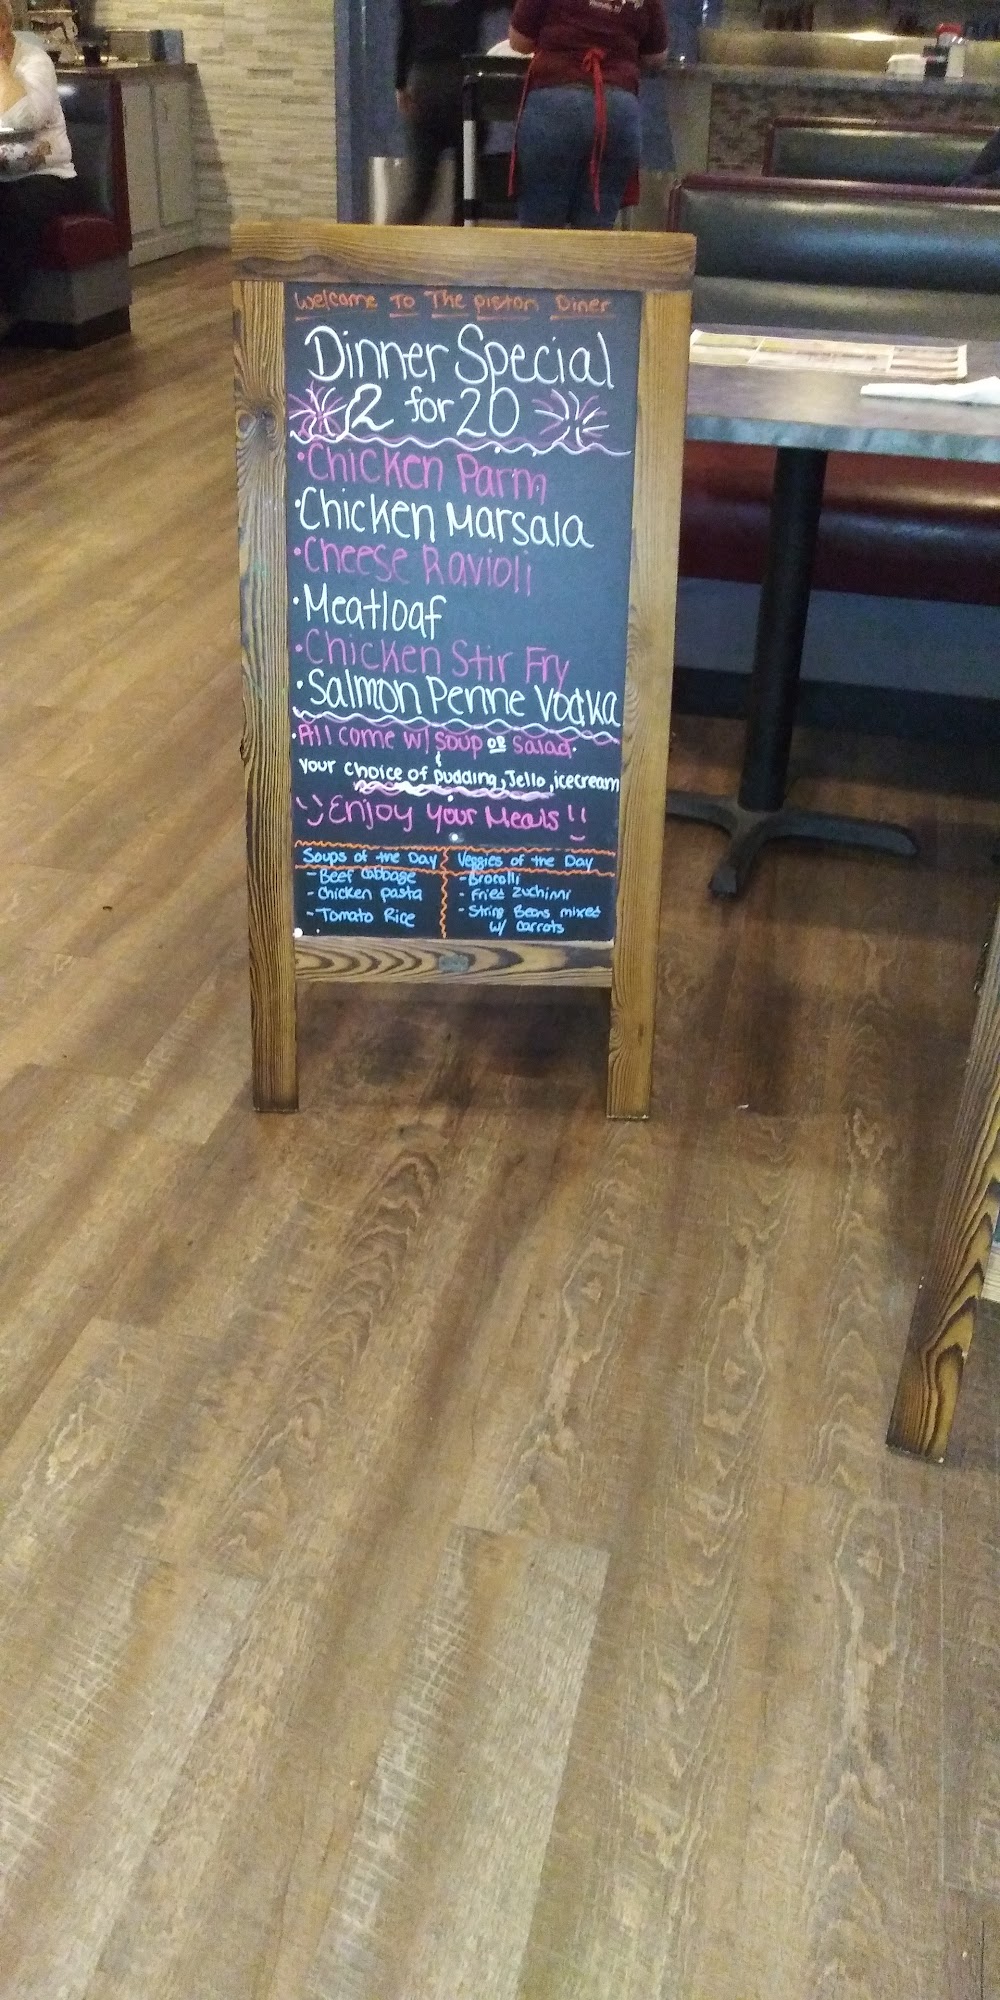 Welcome To The piston Diner
Dinner Special
2 for 20
·Chicken Parm
·Chicken Marsala
·Cheese Ravioli
·Meatloaf
·Chicken Stir Fry
·Salmon Penne Vodka
·All come w/ soup or salad·
&
your choice of pudding, Jello, icecream
Enjoy your Meals!!
Soups of the Day
- Beef Cabbage
- Chicken pasta
- Tomato Rice
Veggies of the Day
- Brocolli
- Fried Zuchinni
- String Beans mixed
w/ Carrots